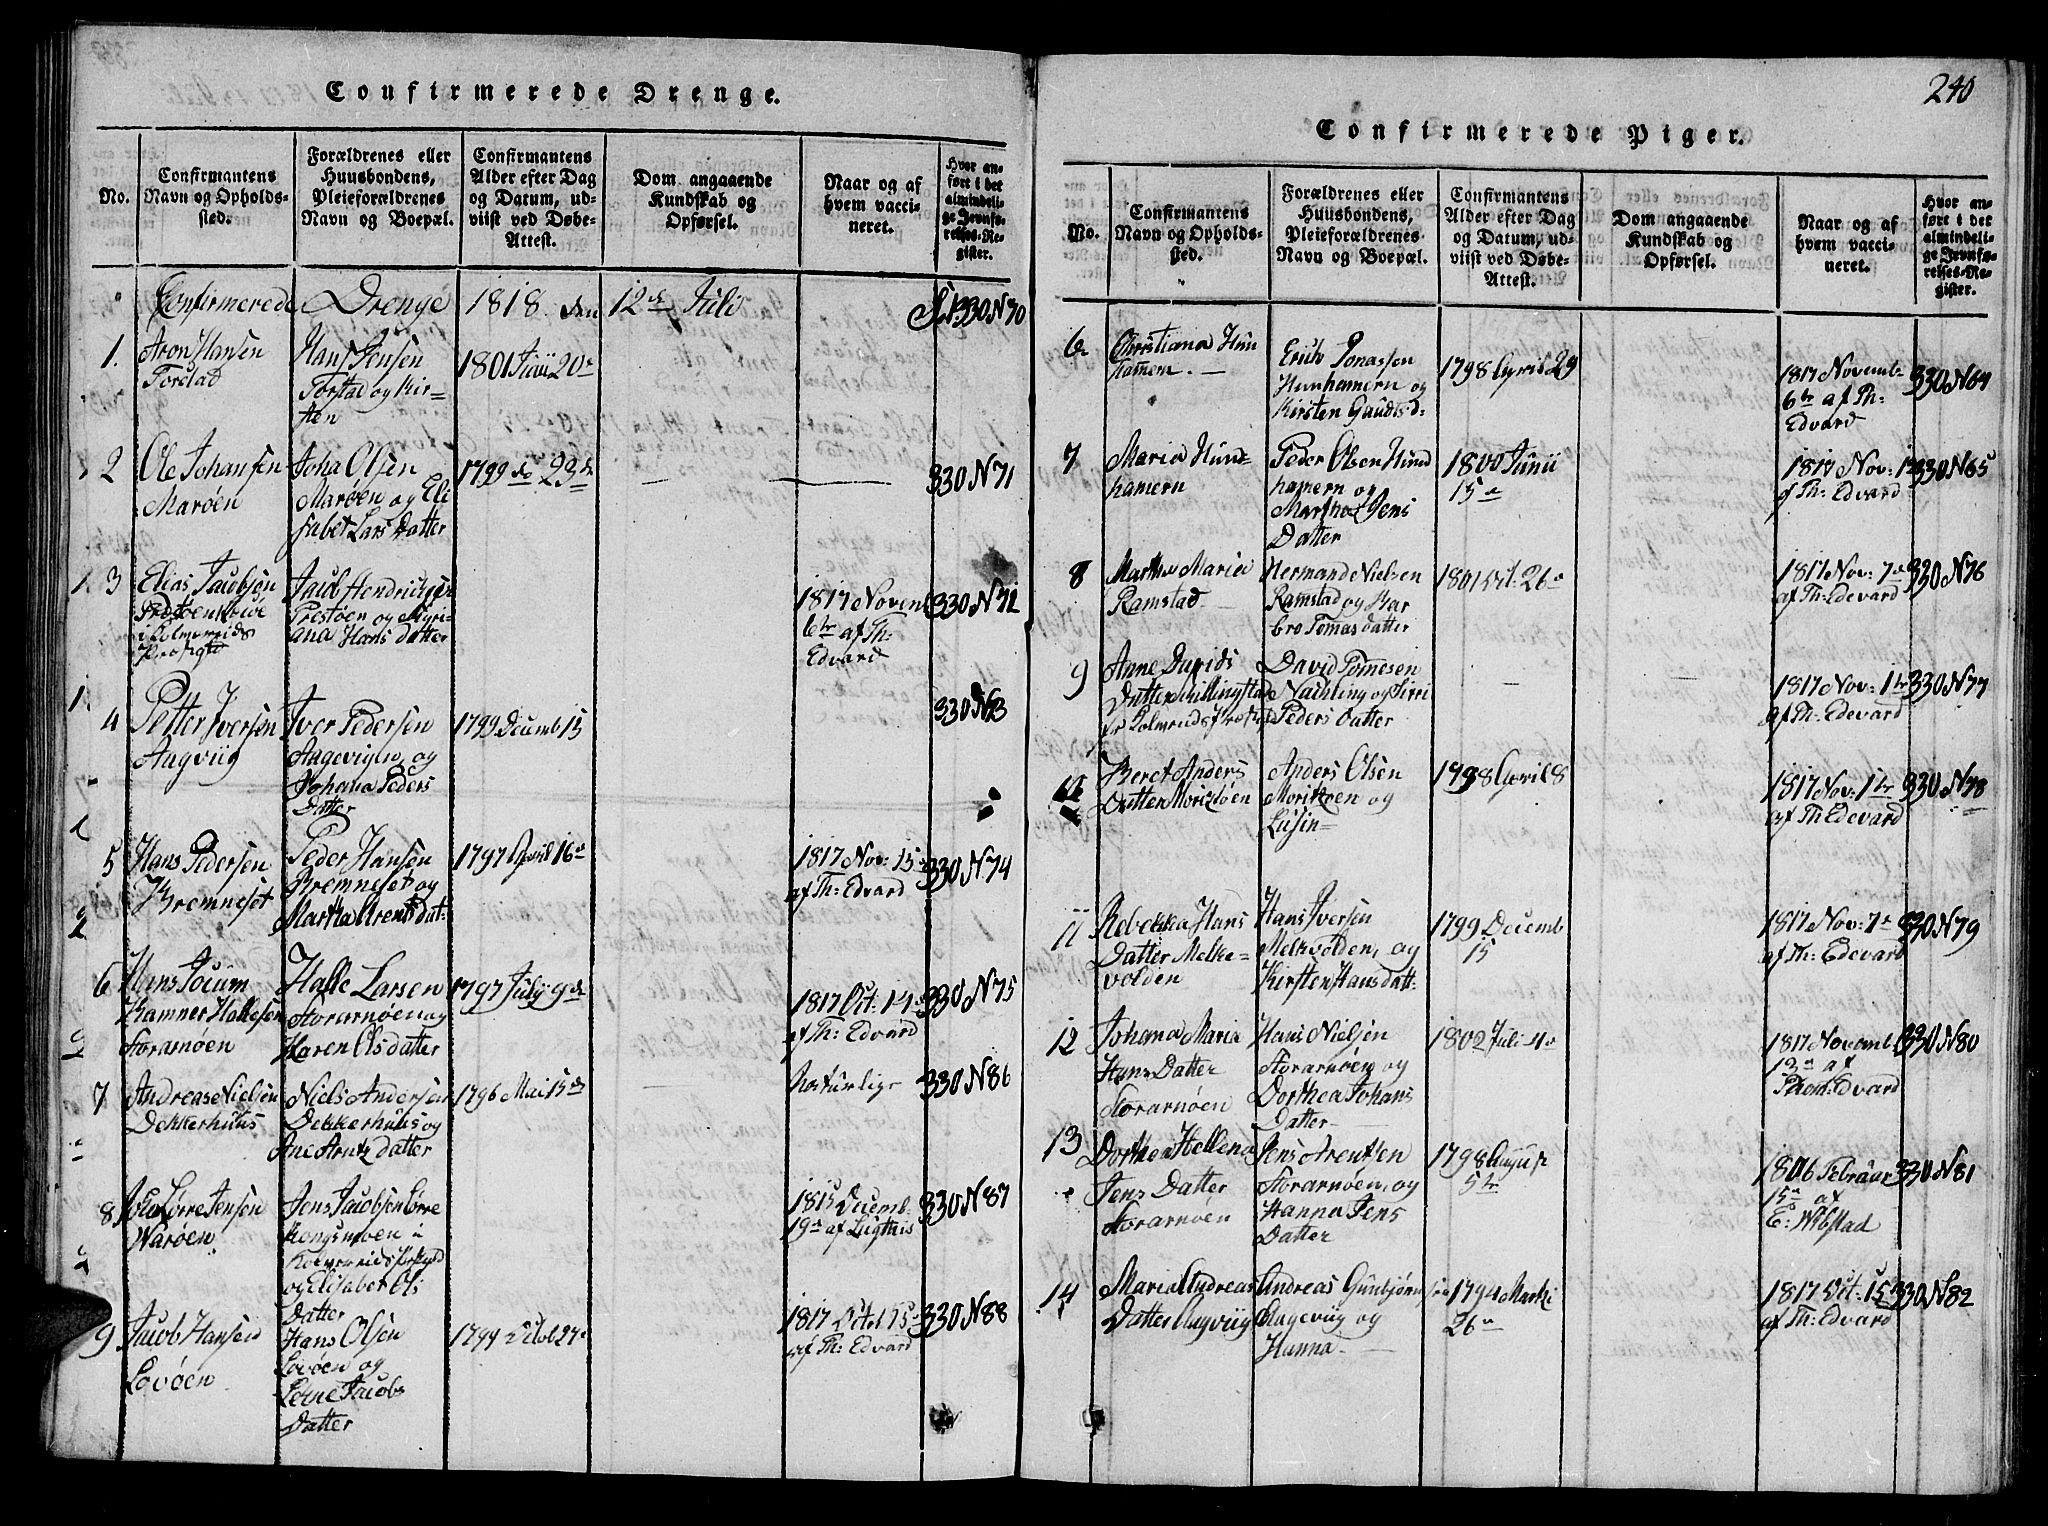 Confirmerede Drenge.
No.
Confirmantens
Navn og Opholds-
sted.
Forældrenes eller
Huusbondens,
Pleieforældrenes
Navn og Boepæl.
Confirmantens
Alder efter Dag
og Datum, ud-
viist ved Døbe-
Attest.
Dom angaaende
Kundskab og
Opførsel.
Naar og af
hvem vacci-
neret.
Hvor an-
ført i det
almindeli-
ge Jevnfø-
relses-Re-
gister.
Confirmerede Drenge 1818 den 12te Juli
1.
Aron Hansen
Torstad
Hans Jensen
Torstad og Kir-
sten
1801 Juii 20
330 N70
2
Ole Johansen
Marøen
Joha Olsen
Marøen og Eli
sabet Lars Datter
1799 de 23
330 N71
3
Elias Jacobsen
Præstøen
Jacob Hendricksen
Prestøen og Myri-
ana Hans datter
1817 Novemb
6te af Th:
Edvard
330 N72
4
Petter Iversen
Augviig
Iver Pedersen
Aagevigen og
Johana Peders
Datter
1799 Decemb 15
330 N73
5
Hans Pedersen
Bremneset
Peder Hansen
Bremneset og
Martha Arents dat:
1797 April 16
1817 Nov: 15
af Th: Edvard
330 N74
6
Hans Jocum
Kamner Hallesen
Storarnøen
Halle Larsen
Storarnøen og
Karen Ols datter
1797 July 9de
1817 Oct: 14
af Th: Edvard
330 N75
7
Andreas Nielsen
Dekkerhuus
Niels Andersen
Dekkerhuus og
Ane Arntz datter
1796 Mai 15
Naturlige
330 N86
8
Lørre Jensen
Warøen
Jens Jacobsen Lørre
Kongsmoen i
og Elisabet Ols
Datter
1815 Decemb.
19 af Lugthis
330 N87
9
Jacob Hansen
Lovøen
Hans Olsen
Lovøen og
Lene Jacobs
Datter
1817 Octob 15
af Th: Edvard
330 N88
240
Confirmerede Piger.
No.
Confirmantens
Navn og Opholds-
sted.
Forældrenes eller
Huusbondens,
Pleieforældrenes
Navn og Boepæl.
Confirmantens
Alder efter Dag
og Datum, ud-
viist ved Døbe-
Attest.
Dom angaaende
Kundskab og
Opførsel.
Naar og af
hvem vacci-
neret.
Hvor an-
ført i det
almindeli-
ge Jevnfø-
relses-Re-
gister.
6
Christiana Hun
hamern
Erich Jonassen
Hunhamern og
Kirsten Gauds d-
1798 April 29
1817 Novemb
6te af Th:
Edvard
330 N64
7
Maria Hund-
hamern
Peder Olsen Hund
hamern og
Martha Jens
Datter
1800 Junii
15
1817 Nov:
af Th: Edvard
330 N65
8
Martha Maria
Ramstad
Hermand Nielsen
Ramstad og Bar
bro Tomas datter
1817 Nov: 7
af Th: Edevard
330 N76
9
Anne Davids
Datter
David Tomesen
og Sirri
Peders Datter
1817 Nov: 1te
af Th: Edevard
330 N77
Beret Anders
Datter Moriztøen
Anders Olsen
og
Lusin-
1798 April 8
1817 Nov: 1te
af Th Edevard
330 N78
11
Rebekka Hans
Datter Melke-
volden
Hans Iversen
Melkvolden, og
Kirsten Hans datt.
1799 Decemb
15
1817 Nov: 7
af Th: Edevard
330 N79
12
Johana Maria
Hans Datter
Storarnøen
Hans Nielsen
Storarnøen og
Dorthea Johans
Datter
1802 Juli 4
1817 Novemb
13 af
Thom: Edvard
330 N80
13
Dorthea Hellena
Jens Datter
Storarnøen
Jens Arentsen
Storarnøen, og
Hanna Jens
Datter
1798 August
5te
1806 Februar
15 af
E: Wibstad
330 N81
14
Maria Andreas
Datter Augviig
Andreas Gunbjørnsen
Aageviig og
Hanna
1794 Martii
26
1817 Oct: 15
af Th: Edvard
330 N82